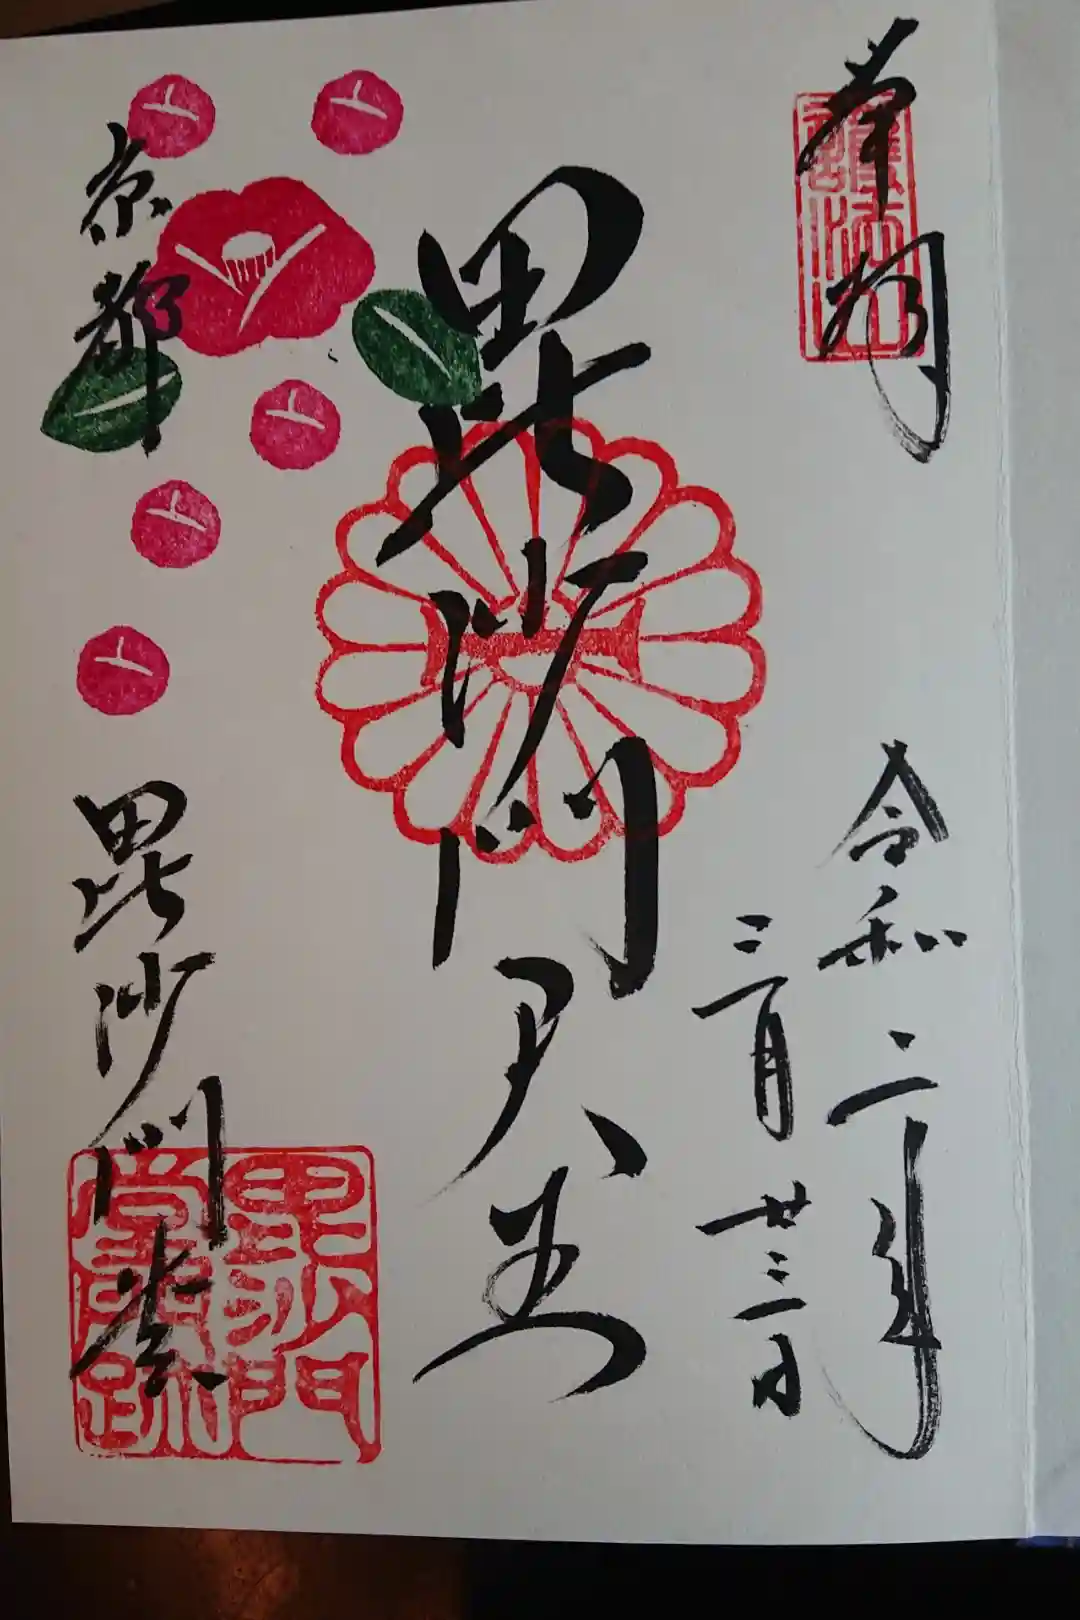 奉拝
護法山
令和二年
三月廿三日
毘沙門天王
京都
毘沙門堂
毘沙門
堂門跡